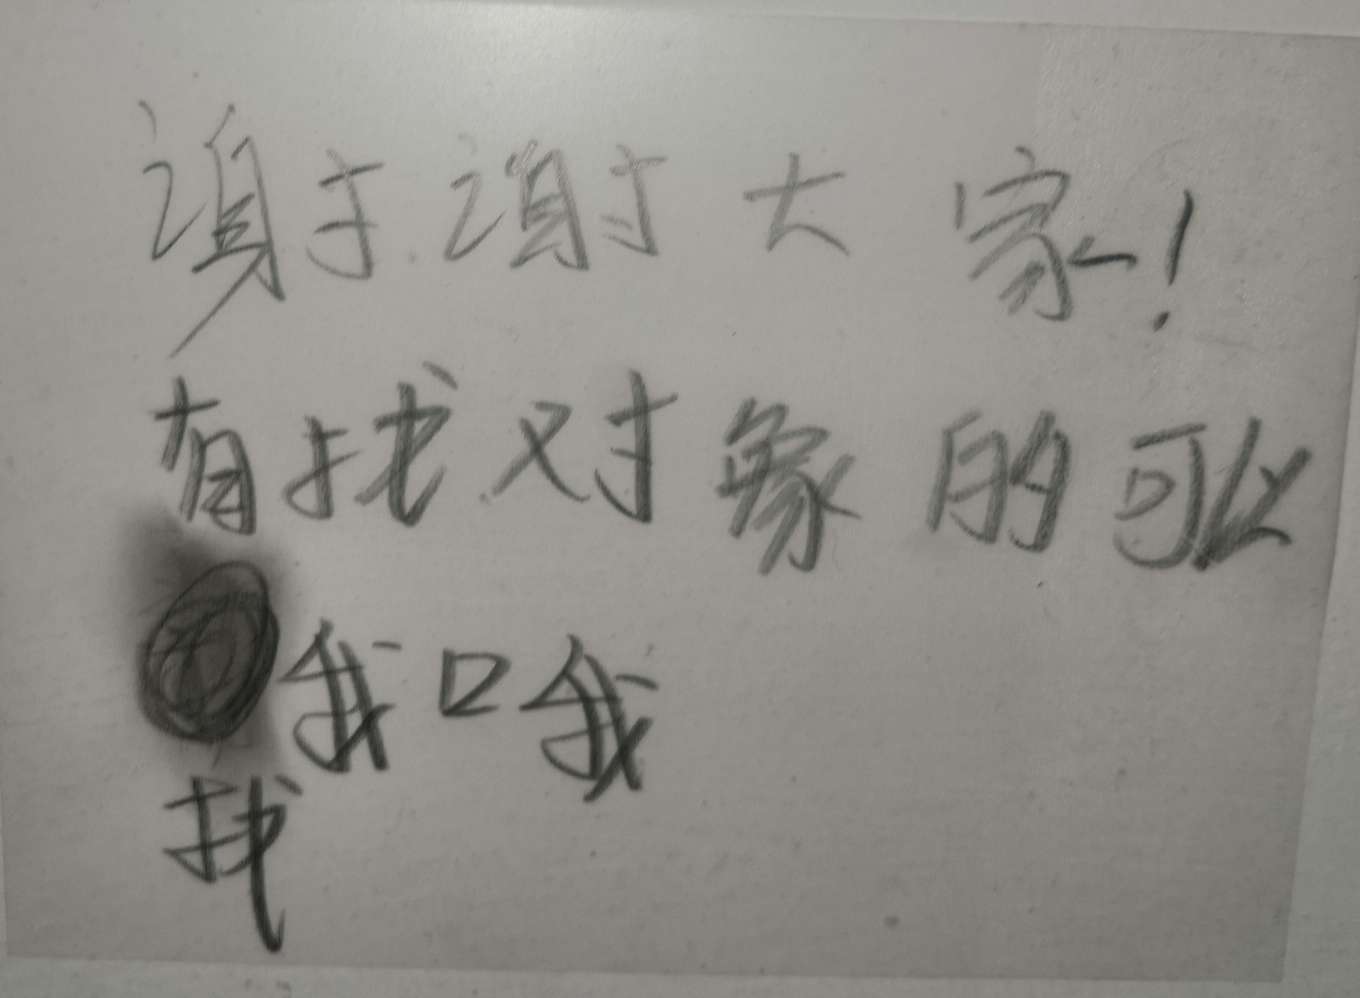 谢谢大家!
有找对象的可以
我口我
找